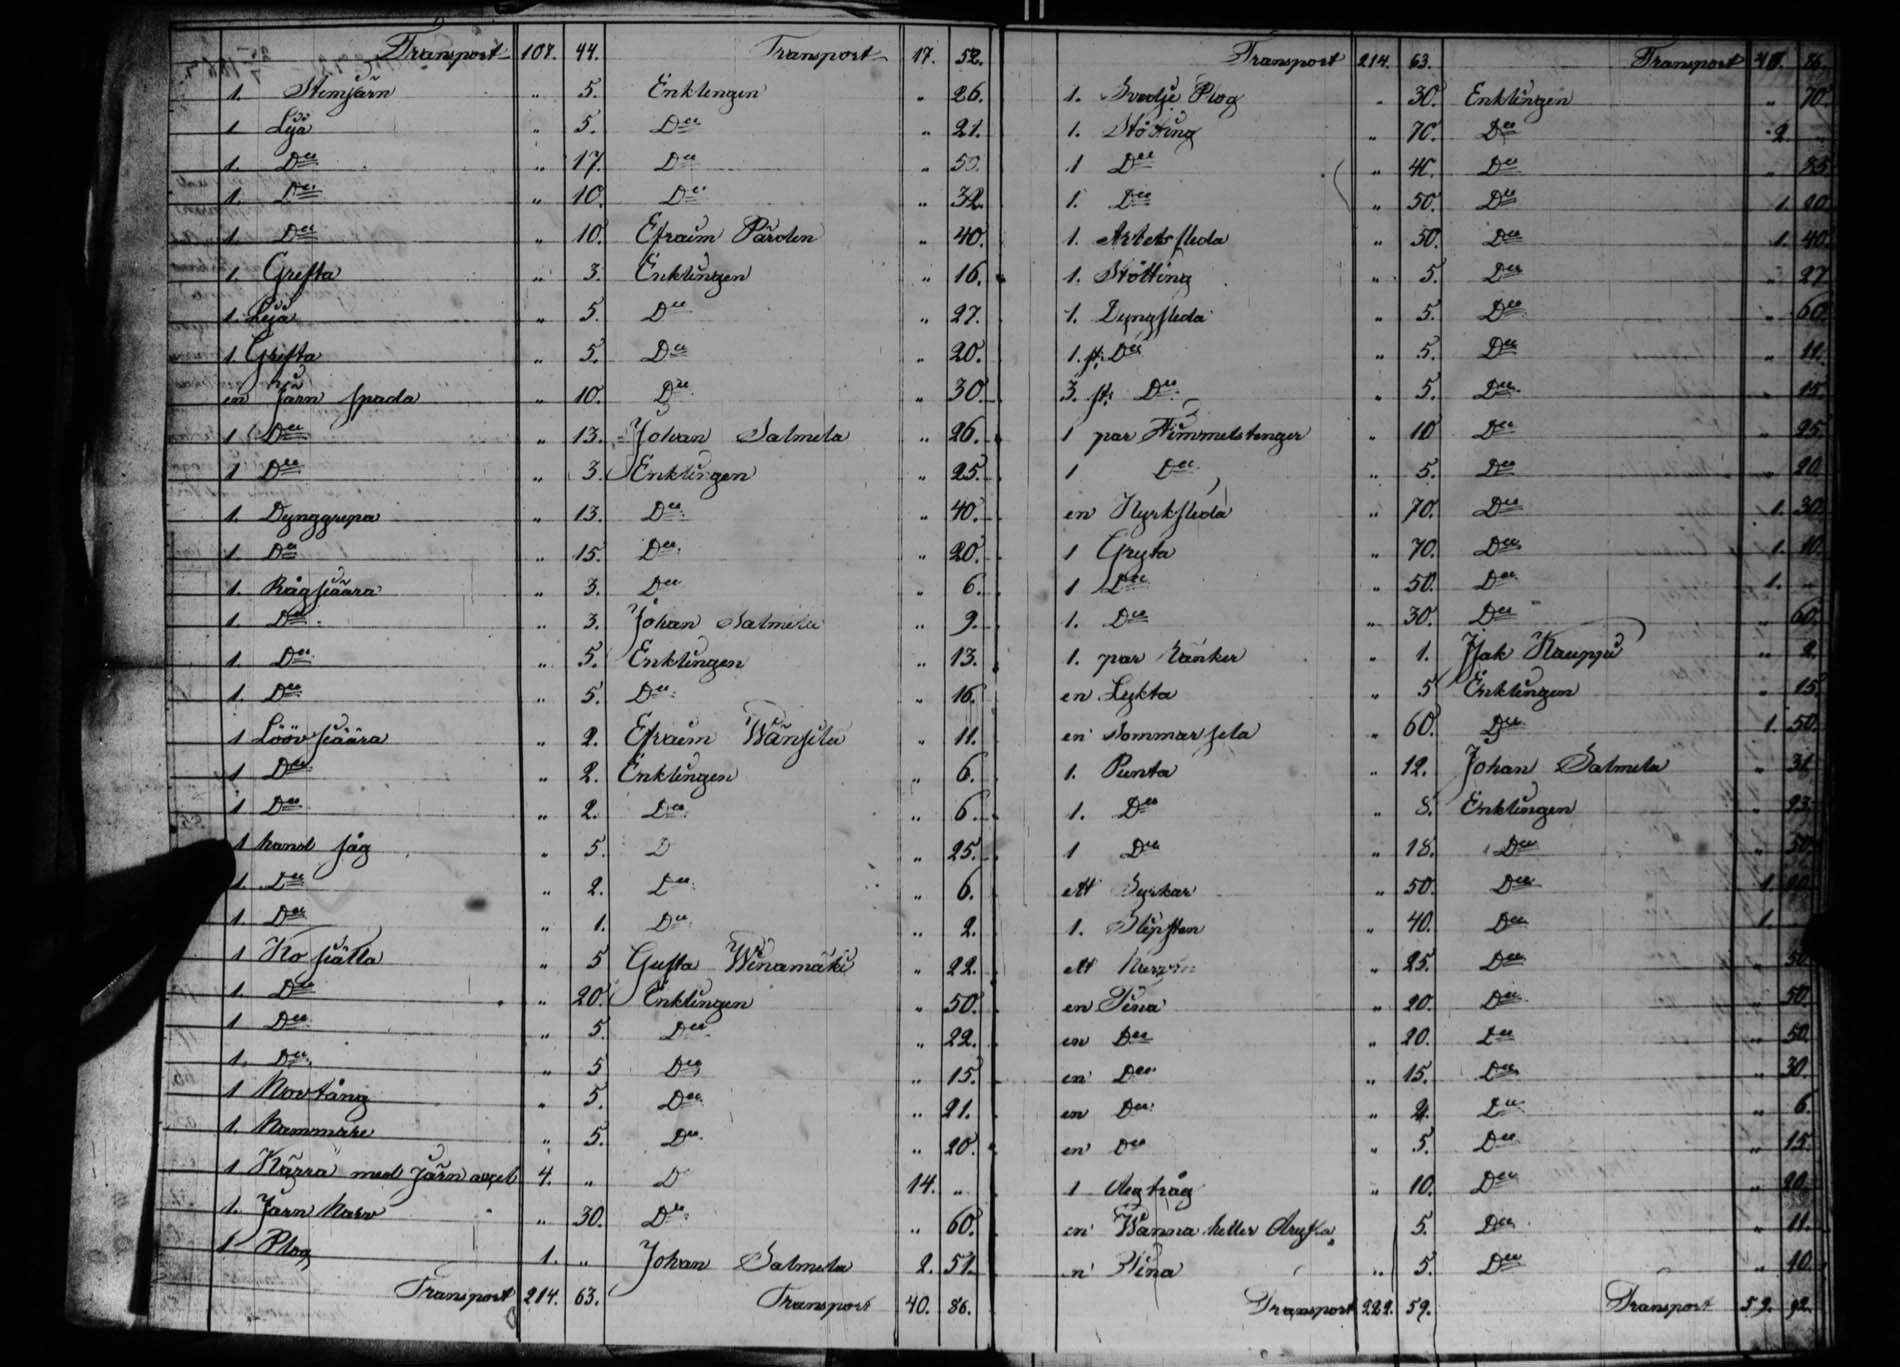 Transport 107. 44. Transport 17. 52.
1. Stemjärn " 5. Enklingen " 26.
1 Lija " 5. Dee " 21.
1. Dee " 17. Dee " 50.
1. Dee " 10. Dee " 32.
1 Dee " 10. Efraim Pärolen " 40.
1 Grefta " 3. Enklingen " 16.
1. Lija " 5. Dee " 27.
1 Grefta " 5. Dee " 20.
en Järn spada " 10. Dee " 30.
1 Dee " 13. Johan Salmela " 26.
1 Dee " 3. Enklingen " 25.
1. Dynggrepa " 13. Dee " 40.
1 De " 15. Dee " 20.
1. Rågskäära " 3. Dee " 6.
1. Dee " 3. Johan Salmela " 9.
1. Dee " 5. Enklingen " 13.
1. Dee " 5. Dee " 16.
1 Löövskäära " 2. Efraim Wänsila " 11.
1 Dee " 2. Enklingen " 6.
1 Dee " 2. Dee " 6.
1 hand såg " 5. D " 25.
1. Dee " 2. Dee " 6.
1. Dee " 1. Dee " 2.
1 Ko skälla " 5 Gusta Winamäki " 22.
1. Dee " 20. Enklingen " 50.
1 Dee " 5. Dee " 22.
1. Dee " 5 Dee " 15.
1 Hovtång " 5. Dee " 21.
1. Hammare " 5. Dee " 20.
1 Kärra med Järn axel 4. " D 14. "
1. Järn Harv " 30. Dee " 60.
1 Plog 1. " Johan Salmela 2. 51.
Transport 214. 63. Transport 40. 86.
Transport 214. 63. Transport 40. 86.
1. Svedje Plog " 30. Enklingen " 70.
1. Stötting " 70. Dee 2. "
1 Dee " 40. Dee " 85
1. Dee " 50. Dee 1. 20
1. Arbets släda " 50. Dee 1. 40.
1. Stötting " 5. Dee " 27
1. Dyngsläda " 5. Dee " 60.
1. st. Dee " 5. Dee " 11.
3. st. Dee " 5. Dee " 15.
1 par Timmelstenger " 10 Dee " 25.
1 Dee " 5. Dee " 20
en Kyrksläda " 70. Dee 1. 30.
1 Gryta " 70. Dee 1. 10.
1 Dee " 50. Dee 1. "
1. Dee " 30. Dee " 60.
1. par Hänker " 1. Jak Kauppi " 2.
en Lykta " 5 Enklingen " 15
en Sommar sela " 60. Dee 1. 50.
1. Punta " 12. Johan Salmela " 31
1. Dee " 8. Enklingen " 23.
1 Dee " 18. Dee " 50.
ett Syrkar " 50. Dee 1. 20.
1. Slipsten " 40. Dee 1.
ett " 25. Dee " 50
en Tina " 20. Dee " 50
en Dee " 20. Dee " 50
en Dee " 15. Dee " 30.
en Dee " 2. Dee " 6.
en Dee " 5. Dee " 15
1 degtråg " 10. Dee " 20.
en Wanna heller " 5. Dee " 11.
en Tina " 5. Dee " 10.
Transport 222. 59. Transport 59. 92.